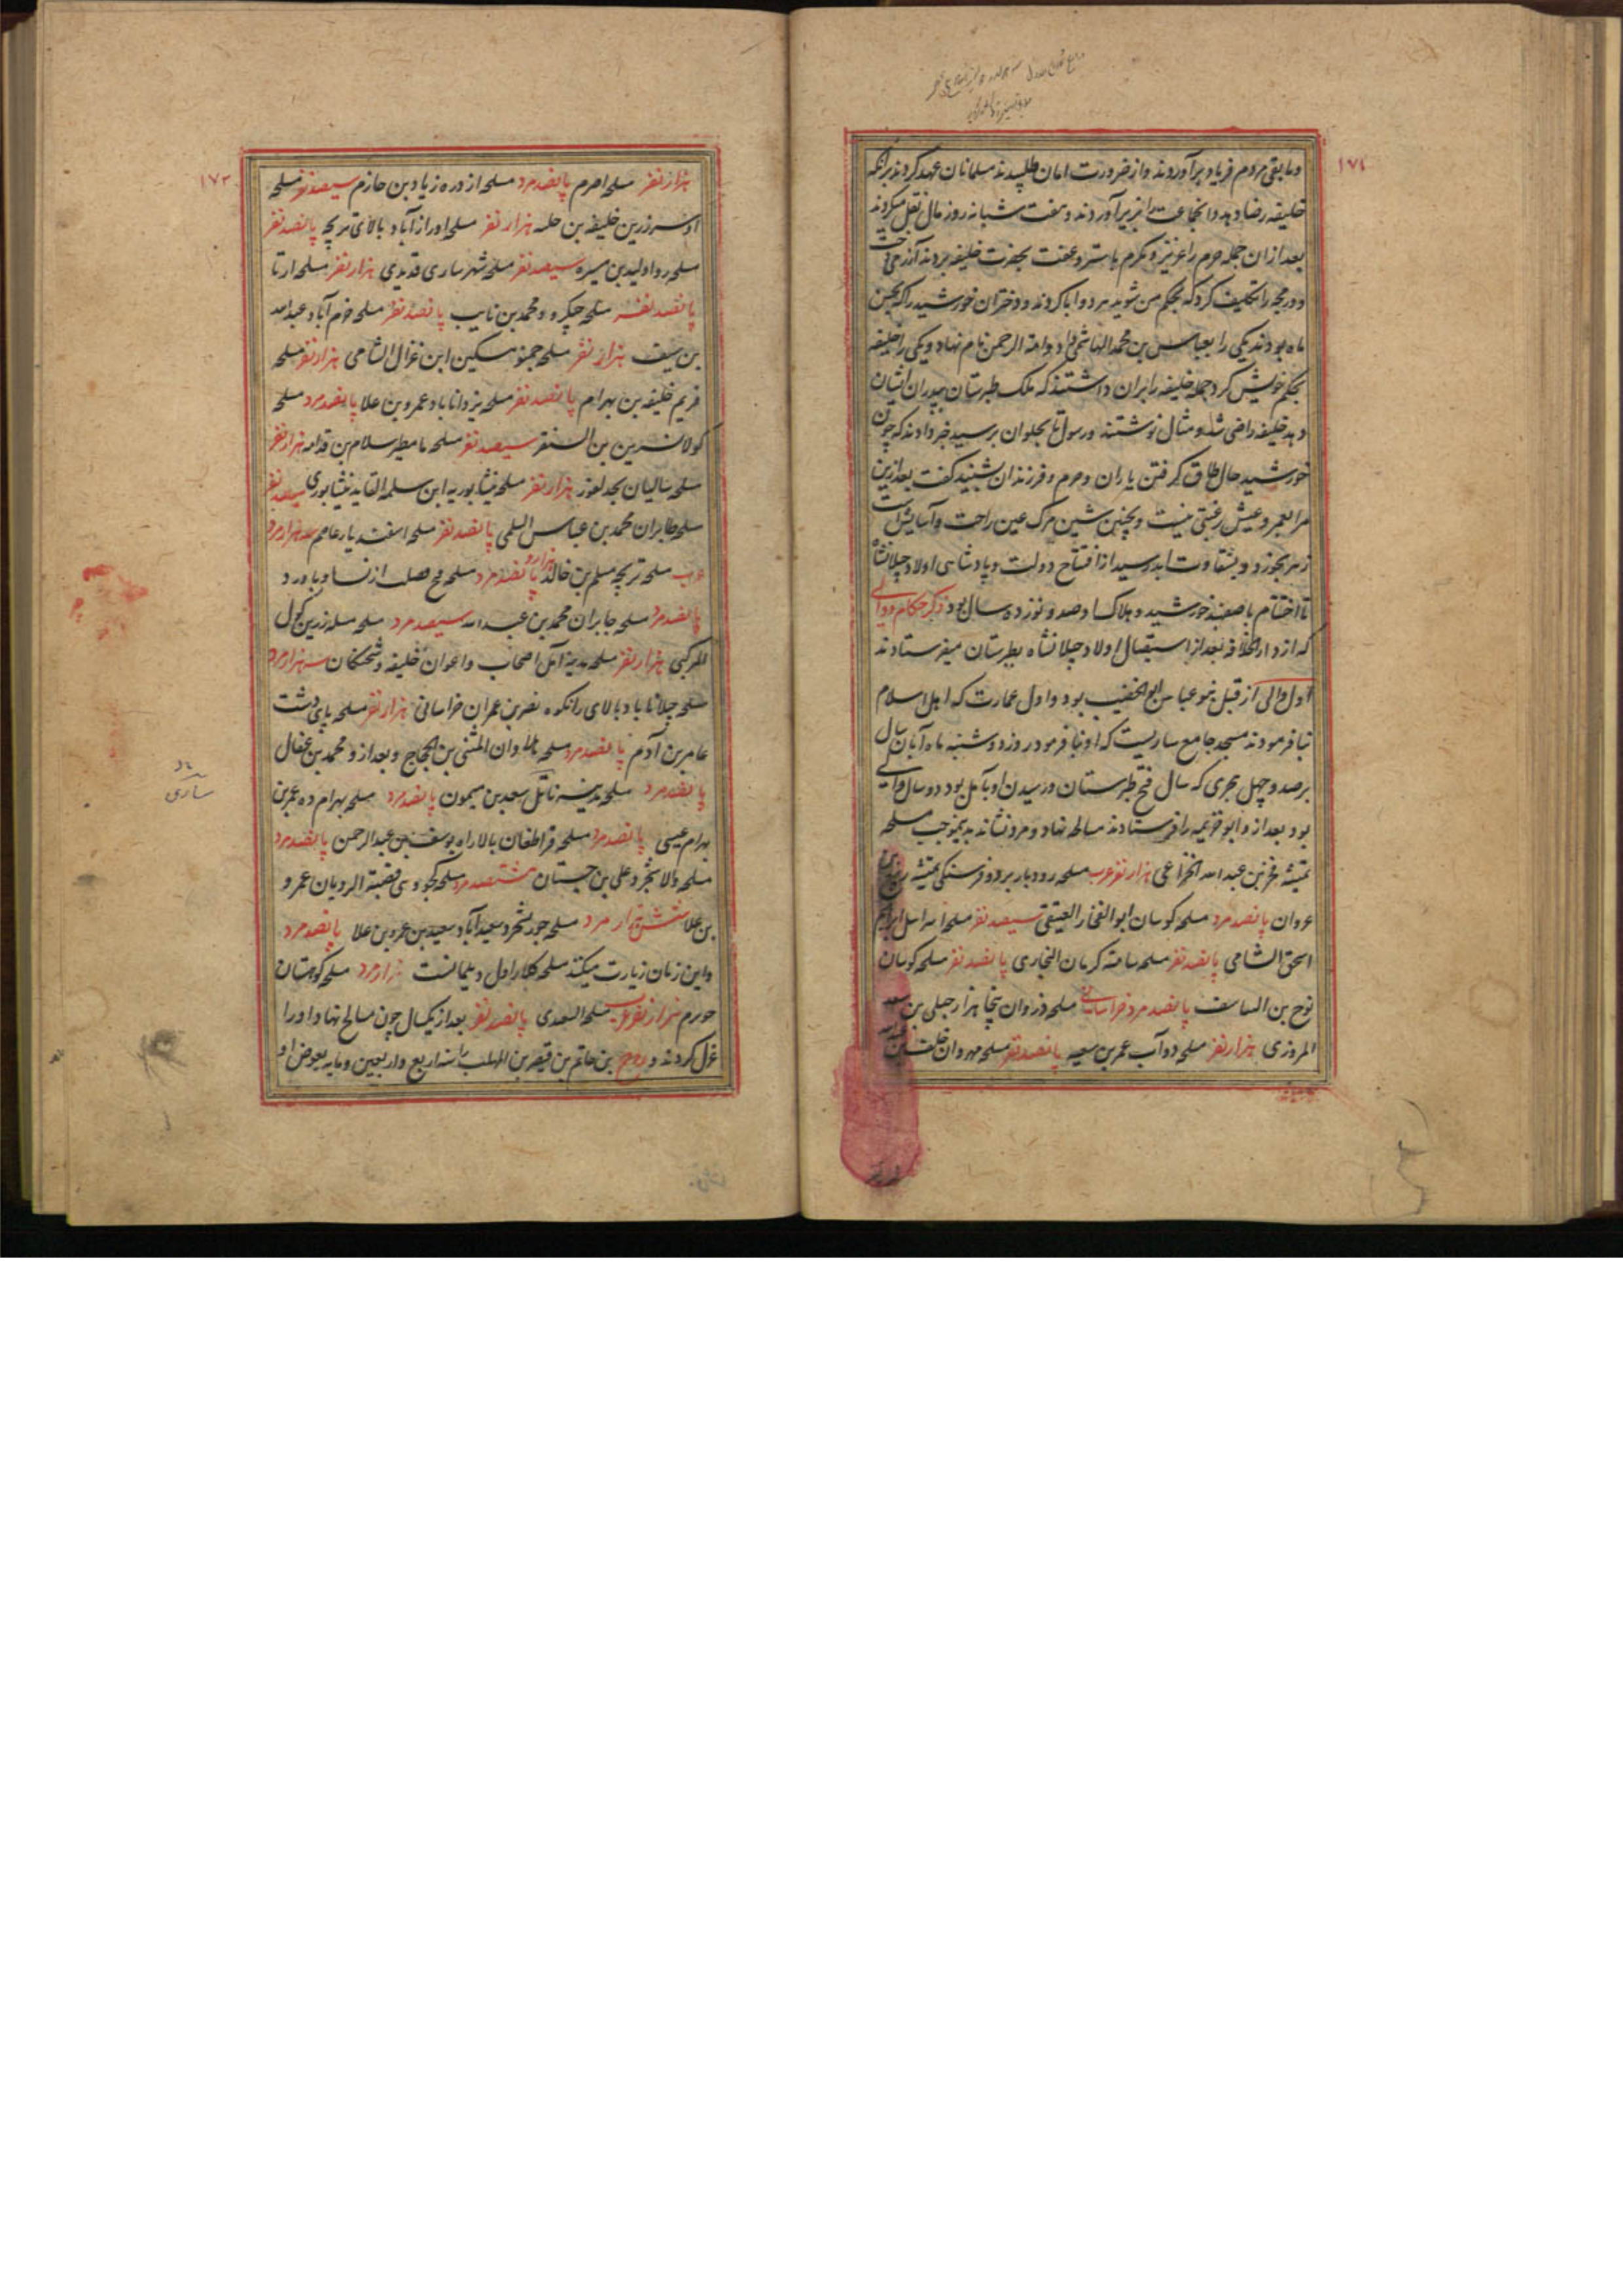 وما بقی مردم فریاد برآوردند و از ضرورت امان طلبیدند مسلمانان عهد کردند برانکه
خلیفه رضا دهد و آنجماعت را بزیر آوردند و هفت شبانه روز مال نقل میکردند
بعد ازان جمله حرم را عزیز و مکرم با ستر و عفت بحضرت خلیفه بردند
و را تکلیف کرد که بحکم من شوید هر دو ابا کردند و دختران خورشید را که
ماه بودند یکی را بعباس بن محمد الهاشمی داد و امة الرحمن نام نهاد و یکی را خلیفه
بحکم خویش کرد جمله خلیفه را بران داشتند که ملک طبرستان بپدر ایشان
دهد خلیفه راضی شد و مثال نوشتند و رسول تا بحلوان برسید خبر دادند که چون
خورشید حال طاق گرفتن یاران و حرم و فرزندان شنید گفت بعد ازین
مرا بعمر و عیش رغبتی نیست و بچنین شین مرک عین راحت و آسایش است
زهر بخورد و بشقاوت ابد رسید از افتتاح دولت و پادشاهی اولاد جیلانشاه
تا اختتام باصفهبد خورشید و هلاک او صد و نوزده سال بود ذکر حکام و والی
که از دار الخلافه بعد از استیصال اولاد جیلانشاه بطبرستان میفرستادند
اول والی از قبل بنو عباس ابو الخضیب بود و اول عمارت که اهل اسلام
بنا فرمودند مسجد جامع ساریست که او بنا فرمود روز دوشنبه ماه آبان سال
بر صد و چهل هجری که سال فتح طبرستان و رسیدن او بآمل بود دو سال والی
بود بعد ازو ابو خزیمه را فرستادند مسالحه نهاد و مرد نشاند بدینموجب مسلحه
تمیشه بن عبد الله الخزاعی هزار نفر عرب مسلحه رودبار بر دو فرسنکی تمیشه
عروان پانصد مرد مسلحه کوسان ابو الفخار العتیقی سیصد نفر مسلحه
اسحق الشامی پانصد نفر مسلحه سامنه کرمان البخاری پانصد نفر مسلحه کوسان
نوح بن پانصد مرد خراسانی مسلحه
المروزی هزار نفر مسلحه دوآب عمر بن سعید پانصد نفر مسلحه مهروان خلیفه بن
هزار نفر مسلحه اصرم پانصد مرد مسلحه ازدره زیاد بن حازم سیصد نفر مسلحه
اوسرزین خلیفه بن هزار نفر مسلحه اورازآباد بالای تریجه پانصد نفر
مسلحه ولید بن میسره سیصد نفر مسلحه شهر ساری قدیدی هزار نفر مسلحه ارتا
پانصد نفر مسلحه چکرود محمد بن نایب پانصد نفر مسلحه خرم آباد عبد الله
بن سیف هزار نفر مسلحه جمنو مسکین ابن غزال الشامی هزار نفر مسلحه
فریم خلیفه بن بهرام پانصد نفر مسلحه یزداناباد عمرو بن علا پانصد مرد مسلحه
کولا نسرین بن السنقر سیصد نفر مسلحه مامطیر سلام بن قدامه هزار نفر
مسلحه سالیان هزار نفر مسلحه نیشابوریه ابن سلمه القاید نیشابوری سیصد نفر
مسلحه جابران محمد بن عباس السلمی پانصد نفر مسلحه اسفندیار عاصم سه هزار مرد
عرب مسلحه تریجه مسلم بن خالد هزار و پانصد مرد مسلحه از نسا و باورد
پانصد مرد مسلحه جابران محمد بن عبد الله سیصد مرد مسلحه مسله زرین کول
المرکبی هزار نفر مسلحه مدینه آمل اصحاب و اعوان خلیفه و شحنکان سه هزار مرد
مسلحه جلاناباد بالای رانکوه نصر بن عمران خراسانی هزار نفر مسلحه پای دشت
عامر بن آدم پانصد مرد مسلحه المثنی بن الحجاج و بعد ازو محمد بن عفال
پانصد مرد مسلحه مدینه ناتل سعد بن میمون پانصد مرد مسلحه بهرام ده عمر بن
بهرام عیسی پانصد مرد مسلحه قراطغان بالا راه یوسف بن عبد الرحمن پانصد مرد
مسلحه ولاشجرد علی بن جستان هشتصد مرد مسلحه کجو و سی قصبة الرویان عمرو
بن علا شش هزار مرد مسلحه سعیدآباد سعید بن عمرو بن علا پانصد مرد
و این زمان زیارت میکنند مسلحه کلار اول دیلمانست هزار مرد مسلحه کوهستان
هزار نفر عرب مسلحه السعدی پانصد نفر بعد از یکسال چون مسالح نهاد او را
عزل کردند و روح بن حاتم بن قیصر بن المهلب را سنه اربع و اربعین و مایه بعوض او
۱۷۳
ساری